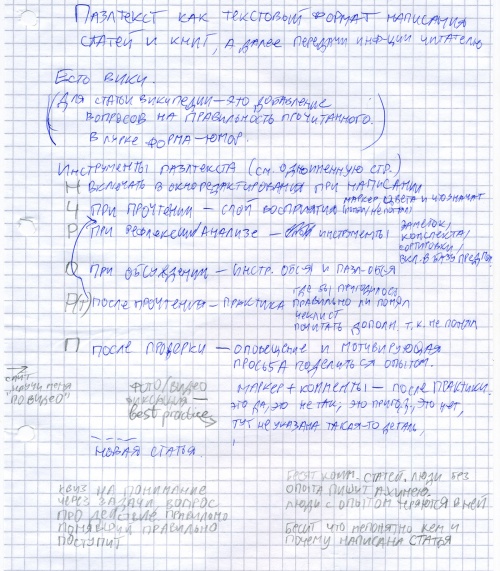 Пазлтекст как текстовый формат написания
статей и книг, а далее передачи инф-ции читателю
Есть вики.
(Для статьи википедии – это добавление
вопросов на правильность прочитанного.
В лурке форма – юмор.)
Инструменты пазлтекста (см. одноименную стр.)
Н включать в окно редактирования при написании
Ч При прочтении – слой восприятия маркер, цвета и что значат
(понял/не понял)
Р При рефлексии/анализе – инструменты заметок/
конспекта/
сортировки/
вкл. в базу предпр
О При обсуждении – инстр. обс-я и пазл-обс-я
Р(т) После прочтения – практика где бы пригодилось
правильно ли понял
чеклист
почитать дополн. т.к. не понял
П После проверки – оповещение и мотивирующая
просьба поделиться опытом.
сайт
"научи меня
по видео"
фото/видео
фиксация
best practices
маркер + комменты – после практики.
это да, это не так, это пригод., это нет,
тут не указана такая-то деталь,
!
Новая статья.
квиз на понимание
через задачи вопрос
про действие правильно
понявший правильно
поступит
Бесят комм. статей. Люди без
опыта пишут ахинею.
Люди с опытом теряются в ней
Бесит что непонятно кем и
почему написана статья